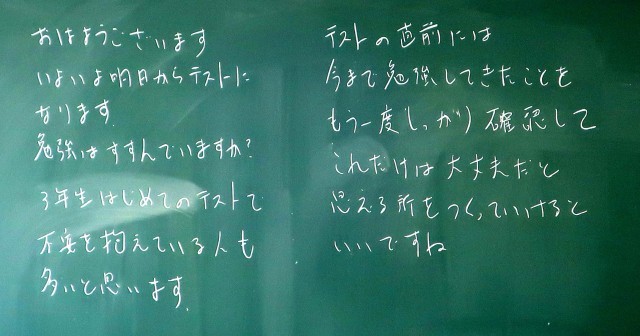 おはようございます
いよいよ明日からテストに
なります.
勉強はすすんでいますか?
3年生はじめてのテストで
不安を抱えている人も
多いと思います.
テストの直前には
今まで勉強してきたことを
もう一度しっかり確認して
これだけは大丈夫だと
思える所をつくっていけると
いいですね